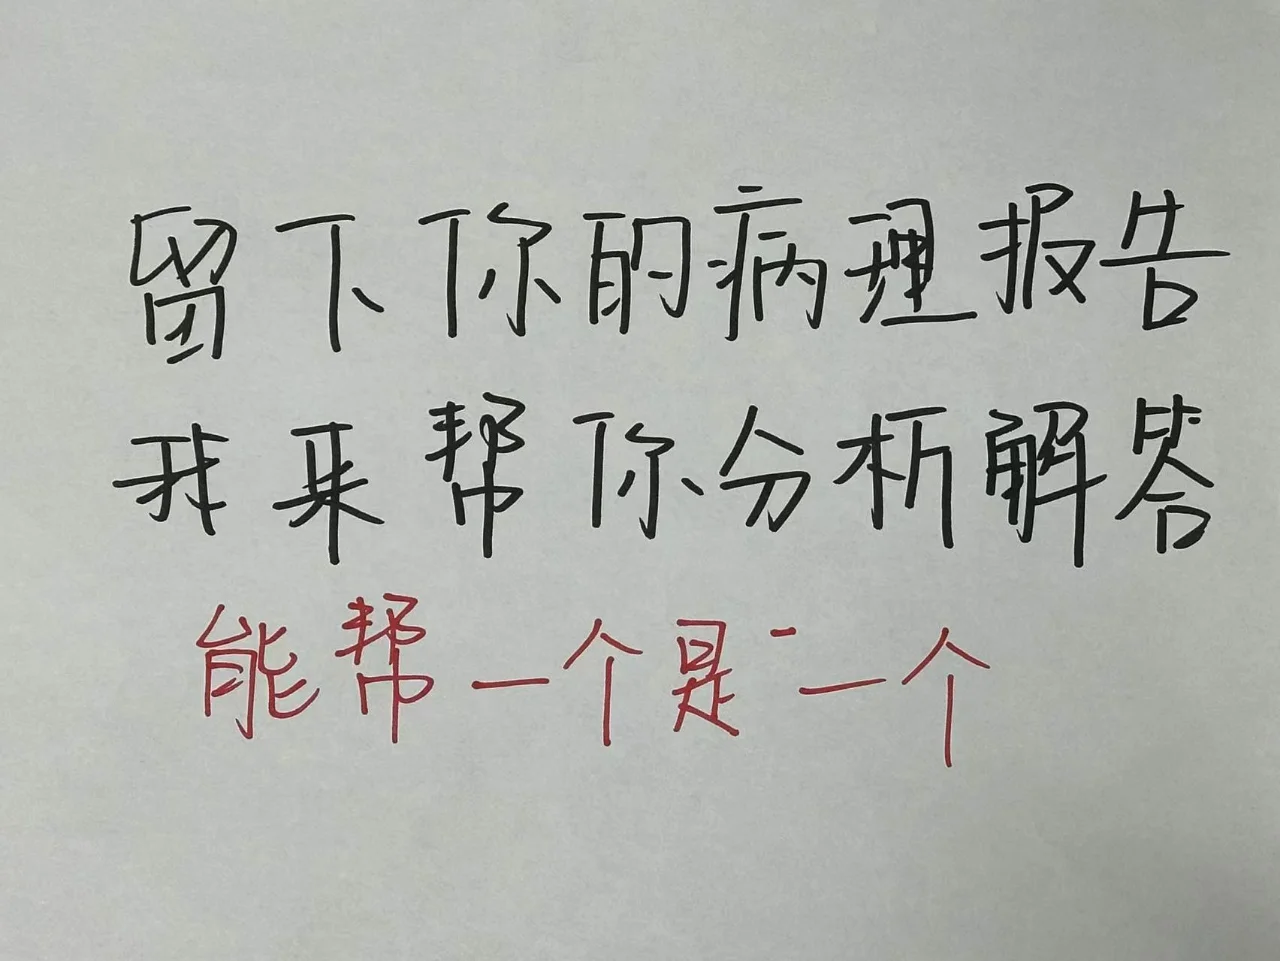 留下你的病理报告
我来帮你分析解答
能帮一个是一个